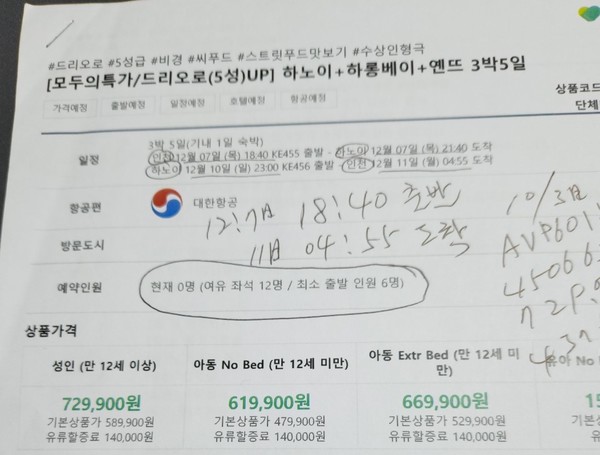 #드리오로 #5성급 #비경 #씨푸드 #스트릿푸드맛보기 #수상인형극
[모두의특가/드리오로(5성)UP] 하노이+하롱베이+옌뜨 3박5일
가격예정 출발예정 일정예정 호텔예정 항공예정
상품코드
단체
일정
3박 5일(기내 1일 숙박)
인천 12월 07일 (목) 18:40 KE455 출발 - 하노이 12월 07일 (목) 21:40 도착
하노이 12월 10일 (일) 23:00 KE456 출발 - 인천 12월 11일 (월) 04:55 도착
항공편
대한항공
12:7일 18:40 출발
11일 04:55 도착
10/3일
AVP601
45066
72P.
437
방문도시
예약인원
현재 0명 (여유 좌석 12명 / 최소 출발 인원 6명)
상품가격
성인 (만 12세 이상)
아동 No Bed (만 12세 미만)
아동 Extr Bed (만 12세 미만)
유아 No
729,900원
기본상품가 589,900원
유류할증료 140,000원
619,900원
기본상품가 479,900원
유류할증료 140,000원
669,900원
기본상품가 529,900원
유류할증료 140,000원
15
기본
유류